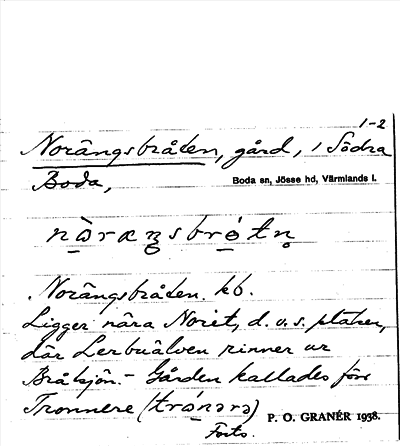 1-2
Norängsbråten, gård, i Södra
Boda,
Boda sn, Jösse hd, Värmlands l.
Norängsbråten. kb.
Ligger nära Noret, d.v.s. platsen,
där Lerbuälven rinner ur
Bråtsjön.- Gården kallades förr
Tronnere
P. O. GRANÉR 1938.
Forts.